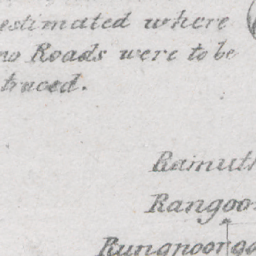 estimated where
no Roads were to be
traced.
Ramuth
Rangoo
Rungpoorga